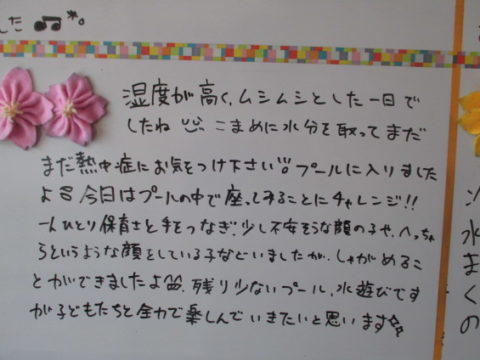 した♪♫*。
湿度が高く、ムシムシとした一日で
したね こまめに水分を取ってまだ
まだ熱中症にお気をつけ下さい!! プールに入りました
よ 今日はプールの中で座ってみることにチャレンジ!!
一人ひとり保育士と手をつなぎ、少し不安そうな顔の子や、へっちゃ
らというような顔をしている子などいましたが、しゃがめるこ
とができましたよ 残り少ないプール、水遊びです
が子どもたちと全力で楽しんでいきたいと思います
水
ま
く
の